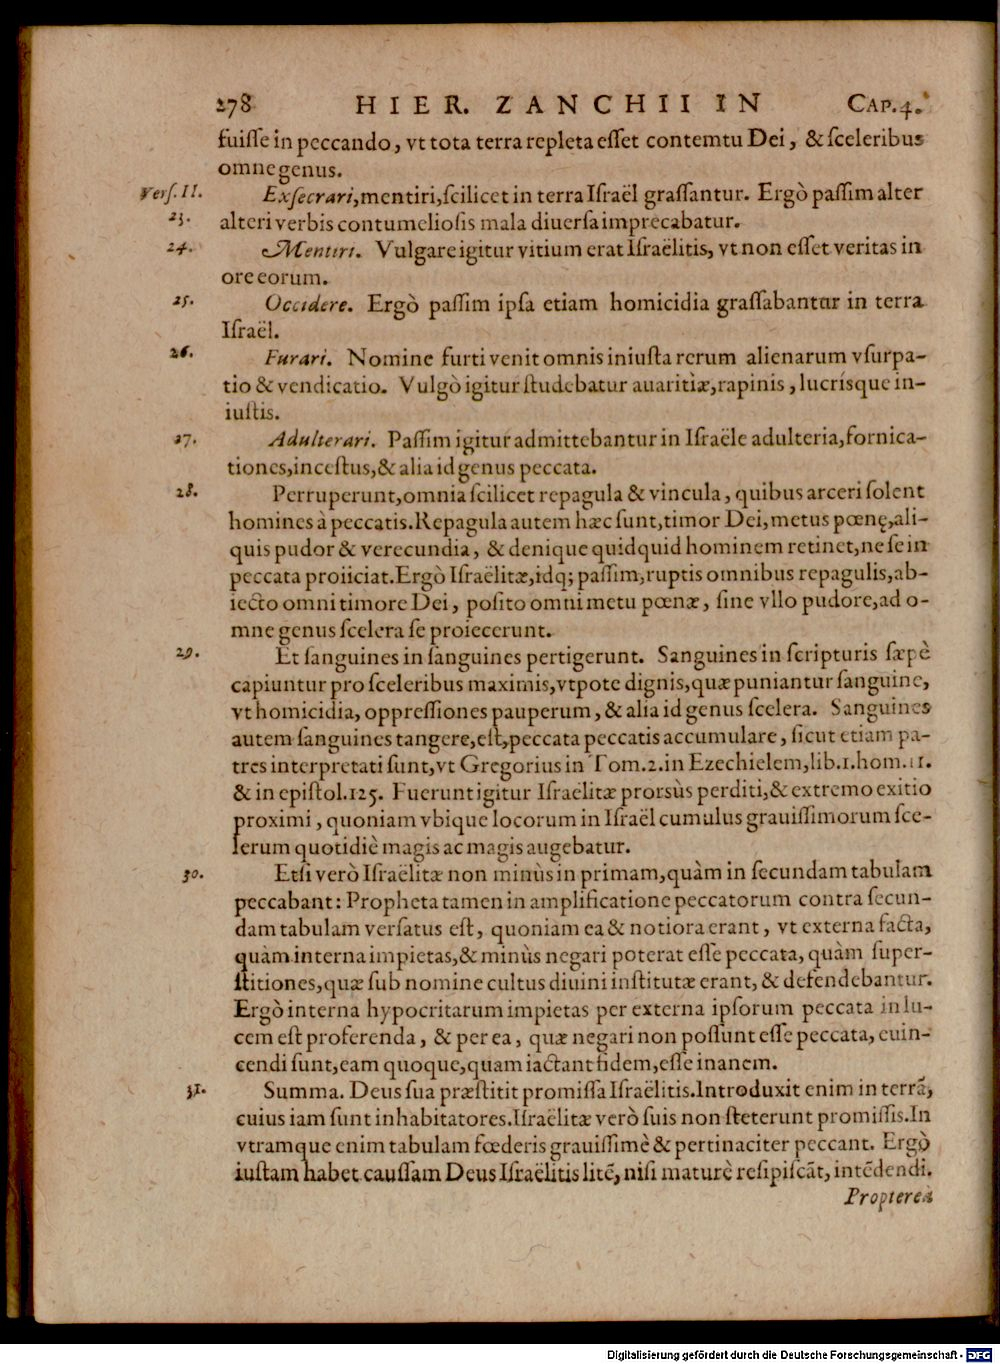 278 HIER. ZANCHII IN CAP. 4.
fuiſſe in peccando, vt tota terra repleta eſſet contemtu Dei, & ſceleribus
omne genus.
Verſ. II. Exſecrari, mentiri, ſcilicet in terra Iſraël graſſantur. Ergò paſſim alter
23. alteri verbis contumelioſis mala diuerſa imprecabatur.
24. Mentiri. Vulgare igitur vitium erat Iſraëlitis, vt non eſſet veritas in
ore eorum.
25. Occidere. Ergò paſſim ipſa etiam homicidia graſſabantur in terra
Iſraël.
26. Furari. Nomine furti venit omnis iniuſta rerum alienarum vſurpa-
tio & vendicatio. Vulgò igitur ſtudebatur auaritiæ, rapinis, lucrísque in-
iuſtis.
27. Adulterari. Paſſim igitur admittebantur in Iſraële adulteria, fornica-
tiones, inceſtus, & alia id genus peccata.
28. Perruperunt, omnia ſcilicet repagula & vincula, quibus arceri ſolent
homines à peccatis. Repagula autem hæc ſunt, timor Dei, metus pœnę, ali-
quis pudor & verecundia, & denique quidquid hominem retinet, ne ſe in
peccata proiiciat. Ergò Iſraëlitæ, idq; paſſim, ruptis omnibus repagulis, ab-
iecto omni timore Dei, poſito omni metu pœnæ, ſine vllo pudore, ad o-
mne genus ſcelera ſe proiecerunt.
29. Et ſanguines in ſanguines pertigerunt. Sanguines in ſcripturis ſæpè
capiuntur pro ſceleribus maximis, vtpote dignis, quæ puniantur ſanguine,
vt homicidia, oppreſſiones pauperum, & alia id genus ſcelera. Sanguines
autem ſanguines tangere, eſt, peccata peccatis accumulare, ſicut etiam pa-
tres interpretati ſunt, vt Gregorius in Tom. 2. in Ezechielem, lib. 1. hom. 11.
& in epiſtol. 125. Fuerunt igitur Iſraëlitæ prorsùs perditi, & extremo exitio
proximi, quoniam vbique locorum in Iſraël cumulus grauiſſimorum ſce-
lerum quotidiè magis ac magis augebatur.
30. Etſi verò Iſraëlitæ non minùs in primam, quàm in ſecundam tabulam
peccabant: Propheta tamen in amplificatione peccatorum contra ſecun-
dam tabulam verſatus eſt, quoniam ea & notiora erant, vt externa facta,
quàm interna impietas, & minùs negari poterat eſſe peccata, quàm ſuper-
ſtitiones, quæ ſub nomine cultus diuini inſtitutæ erant, & defendebantur.
Ergò interna hypocritarum impietas per externa ipſorum peccata in lu-
cem eſt proferenda, & per ea, quæ negari non poſſunt eſſe peccata, euin-
cendi ſunt, eam quoque, quam iactant fidem, eſſe inanem.
31. Summa. Deus ſua præſtitit promiſſa Iſraëlitis. Introduxit enim in terrã,
cuius iam ſunt inhabitatores. Iſraëlitæ verò ſuis non ſteterunt promiſſis. In
vtramque enim tabulam fœderis grauiſſimè & pertinaciter peccant. Ergò
iuſtam habet cauſſam Deus Iſraëlitis litẽ, niſi maturè reſipiſcãt, intẽdendi.
Propterea
Digitalisierung gefördert durch die Deutsche Forschungsgemeinschaft - DFG